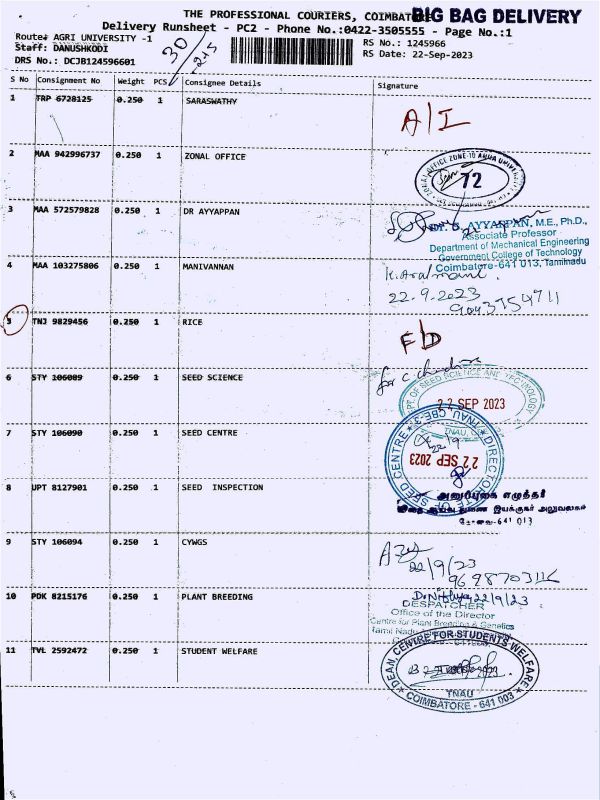 THE PROFESSIONAL COURIERS, COIMBATORE BIG BAG DELIVERY
Delivery Runsheet - PC2 - Phone No.:0422-3505555 - Page No.:1
Route: AGRI UNIVERSITY -1
RS No.: 1245966
Staff: DANUSHKODI
RS Date: 22-Sep-2023
DRS No.: DCJB124596601
30
S No Consignment No Weight PCS Consignee Details Signature
1 TRP 6728125 0.250 1 SARASWATHY
A/I
2 MAA 942996737 0.250 1 ZONAL OFFICE
72
3 MAA 572579828 0.250 1 DR AYYAPPAN
Dr. S. AYYAPPAN, M.E., Ph.D.,
Associate Professor
Department of Mechanical Engineering
Government College of Technology
Coimbatore-641 013, Tamilnadu
4 MAA 103275806 0.250 1 MANIVANNAN
22.9.2023
5 TNJ 9829456 0.250 1 RICE
6 STY 106089 0.250 1 SEED SCIENCE
DEPT. OF SEED SCIENCE AND TECHNOLOGY
22 SEP 2023
7 STY 106090 0.250 1 SEED CENTRE
DIRECTORATE OF SEED CENTRE
TNAU CBE-3
22 SEP 2023
8 UPT 8127901 0.250 1 SEED INSPECTION
இயக்குநர் அலுவலகம்
கோவை-641 013
9 STY 106094 0.250 1 CYWGS
22/9/23
10 PDK 8215176 0.250 1 PLANT BREEDING
22/9/23
DESPATCHER
Office of the Director
Centre for Plant Breeding & Genetics
Tamil Nadu
11 TVL 2592472 0.250 1 STUDENT WELFARE
DEAN, CENTRE FOR STUDENTS WELFARE
TNAU
COIMBATORE - 641 003